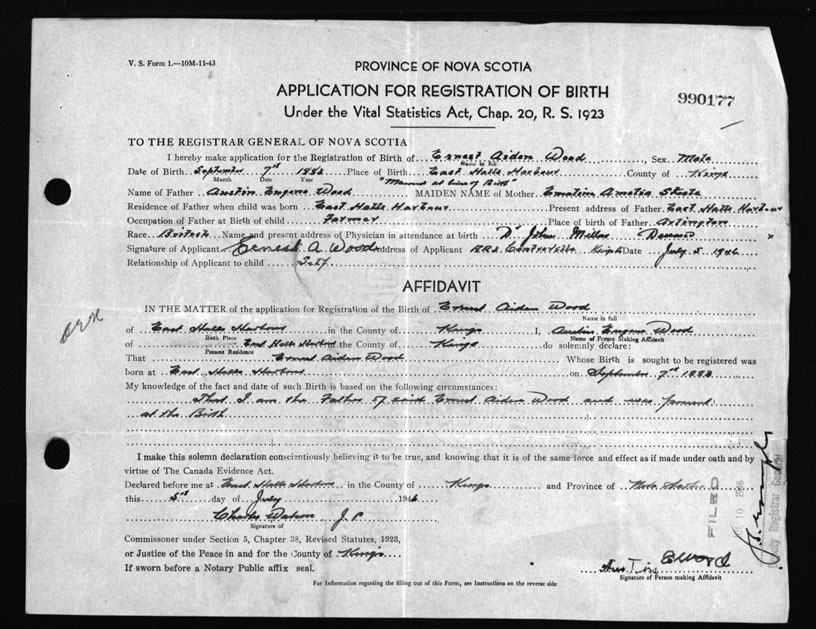 V. S. Form 1.—10M-11-43
PROVINCE OF NOVA SCOTIA
APPLICATION FOR REGISTRATION OF BIRTH
990177
Under the Vital Statistics Act, Chap. 20, R. S. 1923
TO THE REGISTRAR GENERAL OF NOVA SCOTIA
I hereby make application for the Registration of Birth of Ernest Aiden Wood, Sex Male
Name in full
Date of Birth September 7th Place of Birth East Halls Harbour County of Kings
Month Date Year
Name of Father Austin Eugene Wood MAIDEN NAME of Mother Amelia
Residence of Father when child was born East Halls Harbour Present address of Father East Halls Harbour
Occupation of Father at Birth of child Farmer Place of birth of Father Arlington
Race British Name and present address of Physician in attendance at birth Dr John Miller
Signature of Applicant Ernest A Wood Address of Applicant Centreville Kings Date July 5 1946
Relationship of Applicant to child Self
AFFIDAVIT
IN THE MATTER of the application for Registration of the Birth of Ernest Aiden Wood
Name in full
of East Halls Harbour in the County of Kings I, Austin Eugene Wood
Birth Place Name of Person Making Affidavit
of East Halls Harbour the County of Kings do solemnly declare:
Present Residence
That Ernest Aiden Wood Whose Birth is sought to be registered was
born at East Halls Harbour on September 7th
My knowledge of the fact and date of such Birth is based on the following circumstances:
That I am the Father of said Ernest Aiden Wood and was present
at the Birth
I make this solemn declaration conscientiously believing it to be true, and knowing that it is of the same force and effect as if made under oath and by
virtue of The Canada Evidence Act.
Declared before me at East Halls Harbour in the County of Kings and Province of Nova Scotia
this 5th day of July 1946
Charles Watson J. P.
Signature of
Commissioner under Section 5, Chapter 38, Revised Statutes, 1923,
or Justice of the Peace in and for the County of Kings
If sworn before a Notary Public affix seal.
E Wood
Signature of Person making Affidavit
For Information regarding the filling out of this Form, see Instructions on the reverse side
FILED